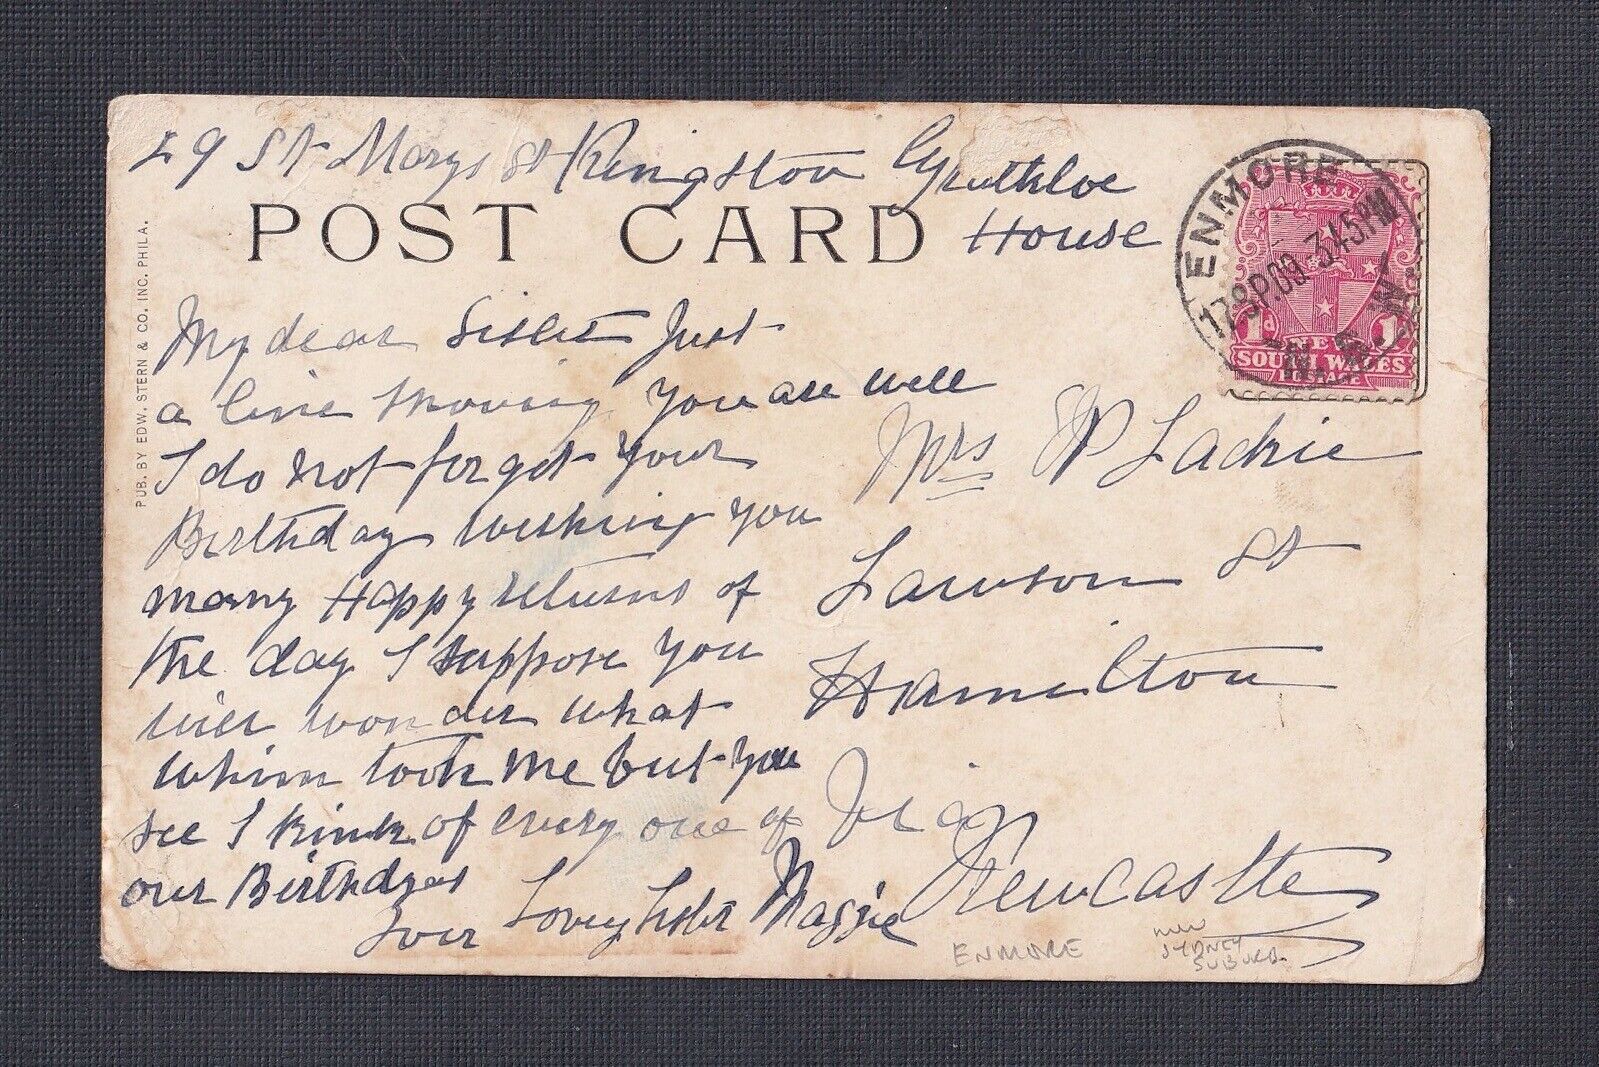 29 St Marys St Kingston
House
POST CARD
PUB. BY EDW. STERN & CO. INC. PHILA.
ENMORE
17 SP.09 3.45PM
N.S.W
1d 1d
NEW
SOUTH WALES
POSTAGE
My dear Sister Just
a line knowing you are well
I do not forget your
Birthday wishing you
many Happy returns of
the day I suppose you
will wonder what
whim took me but you
see I think of every one of
our Birthdays
Your Loving Sister Maggie
Mrs P Lackie
Lawson St
Hamilton
Near
Newcastle
ENMORE
NSW
SYDNEY
SUBURB.